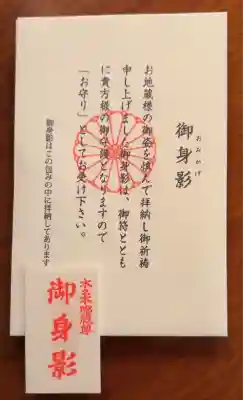 おみかげ
御身影
お地蔵様の御姿を慎んで拝納し御祈祷
申し上げました御身影は、御符ととも
に貴方様の御守護となりますので
「お守り」としてお受け下さい。
御身影はこの包みの中に拝納してあります
木之本地蔵尊
御身影